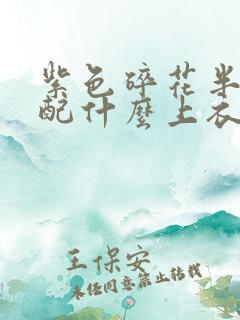 紫色碎花半
配什麼上衣
王保安
未经同意禁止转载